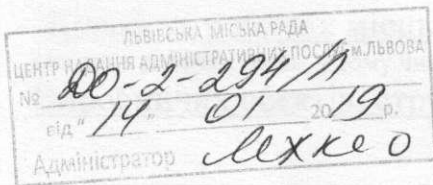 ЛЬВІВСЬКА МІСЬКА РАДА
ЦЕНТР НАДАННЯ АДМІНІСТРАТИВНИХ ПОСЛУГ м.ЛЬВОВА
№ 20-2-294/Л
від "14" 01 2019 р.
Адміністратор